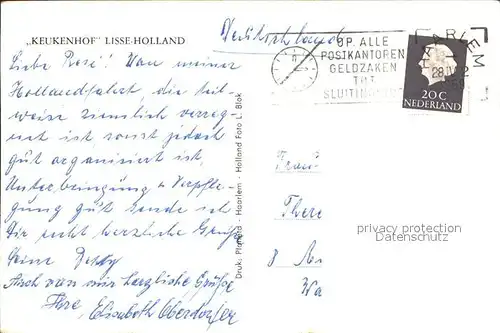 „KEUKENHOF" LISSE-HOLLAND
Deutschland
OP ALLE
POSTKANTOREN
GELDZAKEN
TOT
SLUITING
HAARLEM
28.IV
20C
NEDERLAND
Liebe Rosi! Von meiner
Hollandfahrt, die teil-
weise ziemlich verreg-
net ist, sonst jedoch
gut organisiert ist,
Unterbringung u Verpfle-
gung gut sende ich
Dir recht herzliche Grüße
Deine Detty
Auch von mir herzliche Grüße
Ihre Elisabeth Oberdorfer
Druk: Planeta - Haarlem - Holland Foto L. Blok
Frau
There
8
privacy protection
Datenschutz